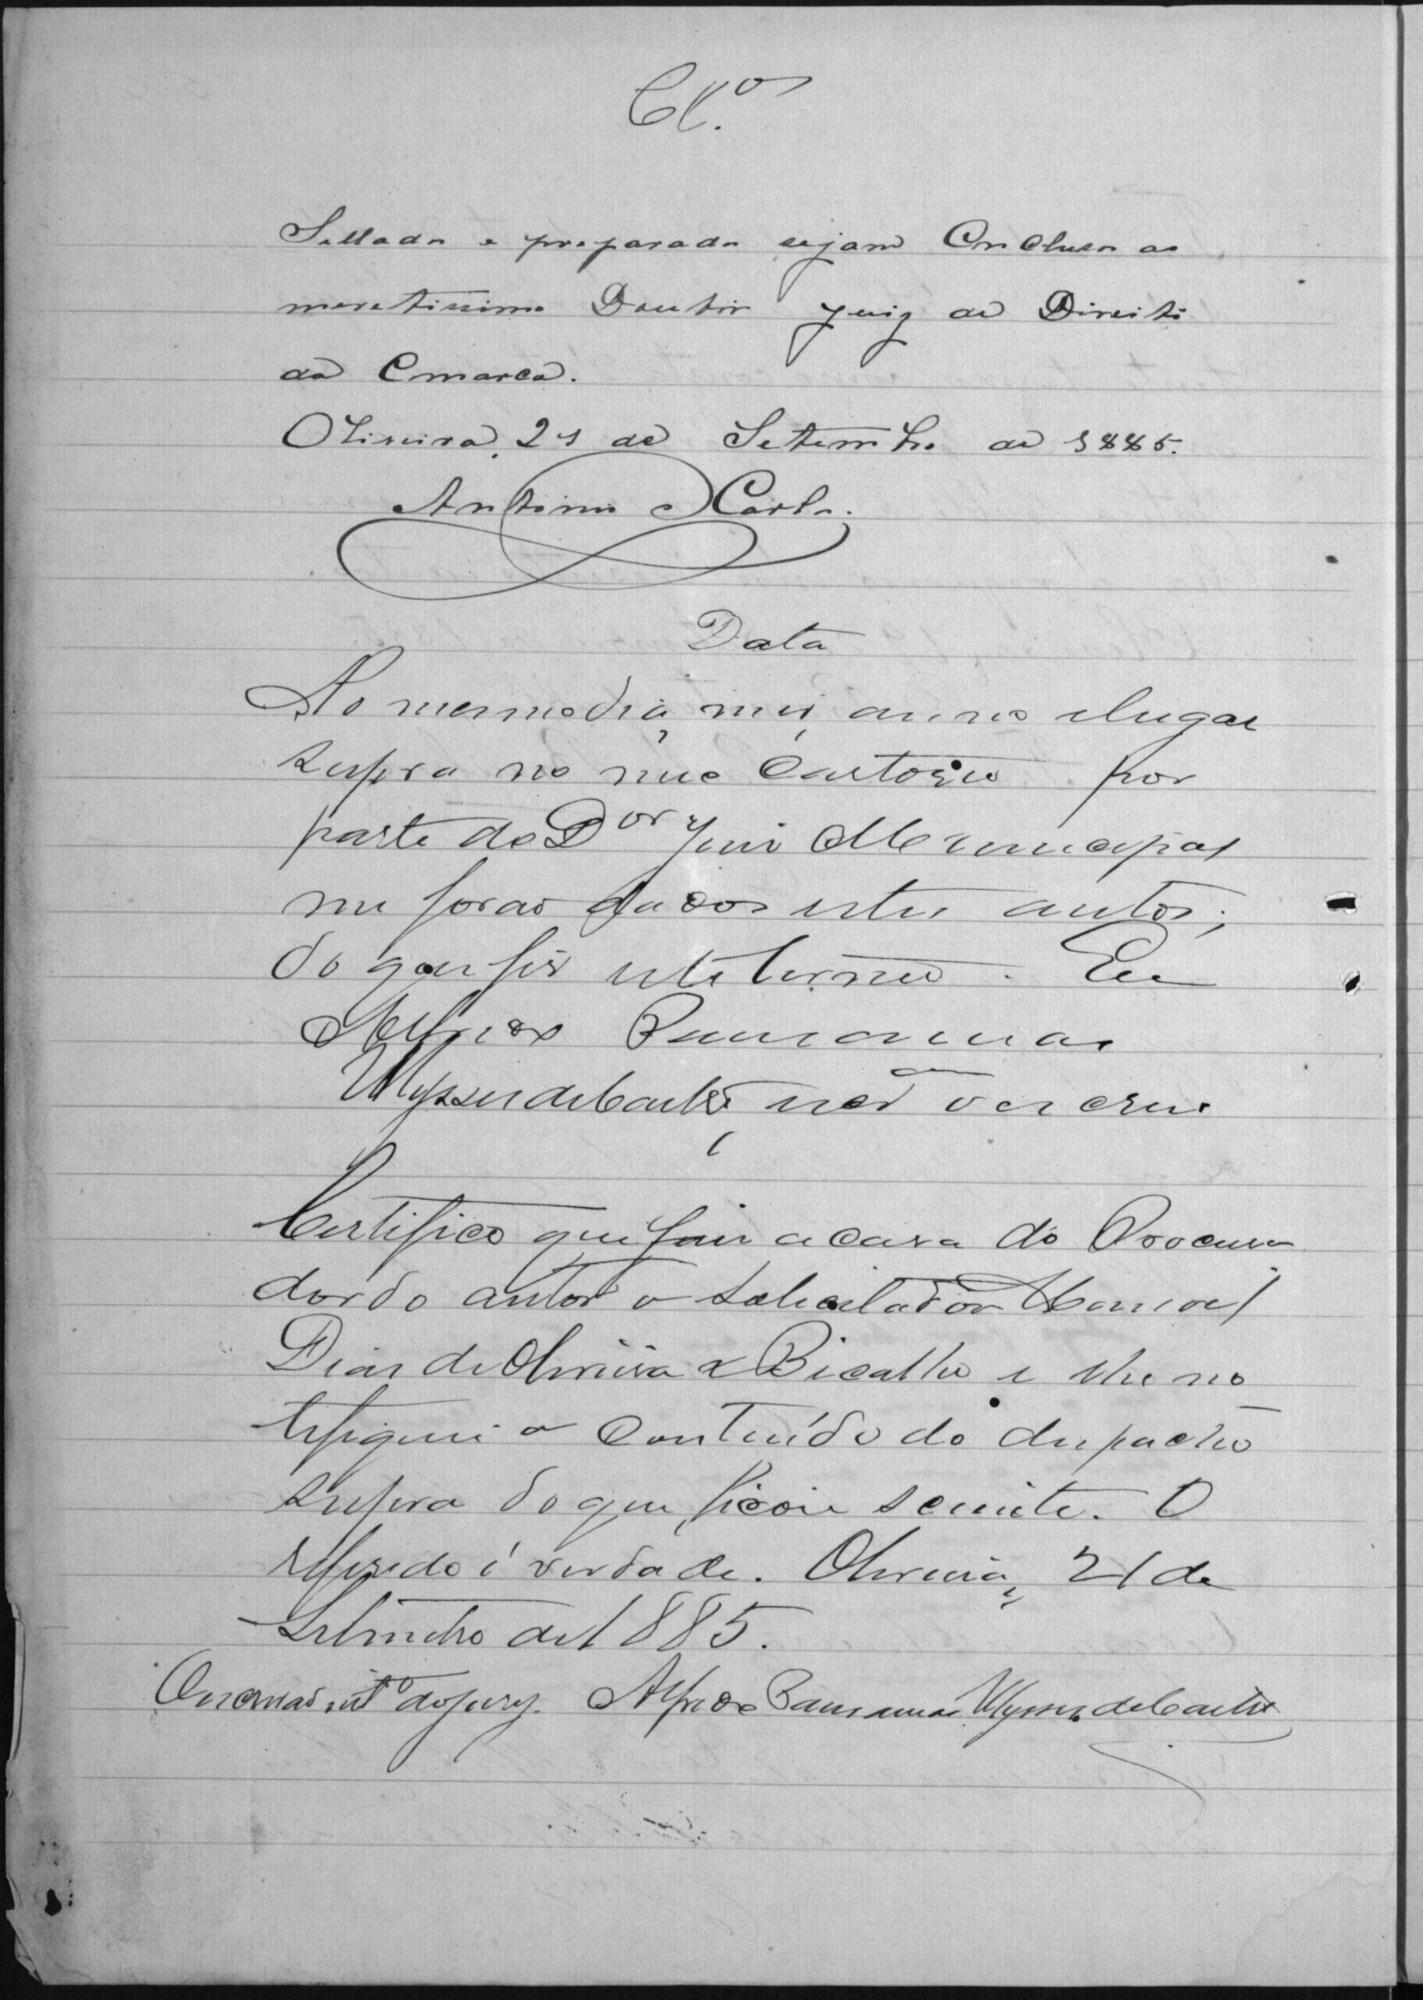 Cl.os
Sellados e preparados sejam Conclusos ao
meretissimo Doutor Juiz de Direito
da Comarca.
Oliveira, 21 de Setembro de 1885.
Antonio Carlos.
Data
No mesmo dia, mes, anno e lugar
supra no meu Cartorio por
parte do Dor Juis Municipal
me forão dados estes autos;
do que fis este termo. Eu
Alfredo Pausanias
Ulysses de Castro, escrivão o escrevi
Certifico que fui a casa do Procura
dor do autor o Solicitador Manoel
Dias de Oliveira Bicalho e lhe no
tifiquei o conteúdo do despacho
supra do que ficou sciente. O
referido é verdade. Oliveira, 21 de
Setembro de 1885.
O escrivão intº do jury. Alfredo Pausanias Ulysses de Castro